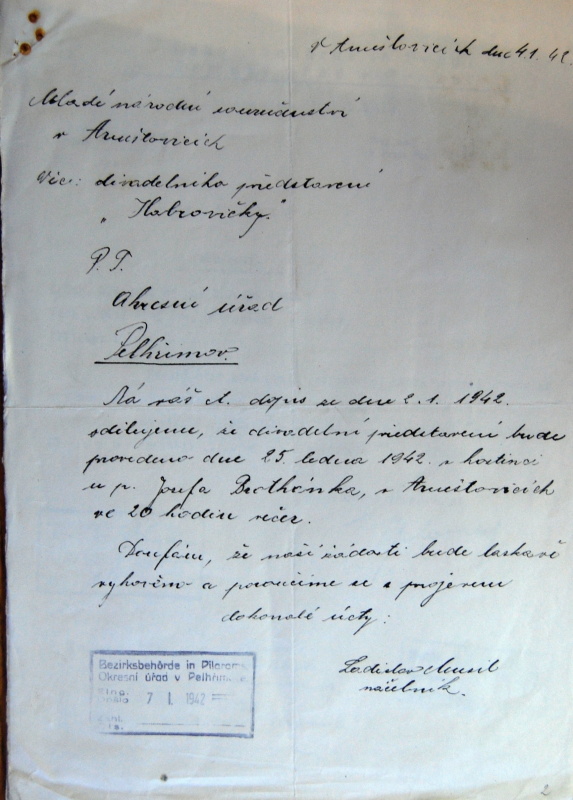 V Arneštovicích dne 4.1. 42.
Mladé národní souručenství
v Arneštovicích
Věc: divadelního představení
„Habrovičky."
P. T.
Okresní úřad
Pelhřimov.
Na váš ct. dopis ze dne 2. 1. 1942.
sdělujeme, že divadelní představení bude
provedeno dne 25. ledna 1942. v hostinci
u p. Josefa v Arneštovicích
ve 20 hodin večer.
Doufám, že naší žádosti bude laskavě
vyhověno a poroučíme se s projevem
dokonalé úcty:
Ladislav Musil
náčelník.
Bezirksbehörde in Pilgram
Okresní úřad v Pelhřimově
Eing.
Došlo 7 I. 1942
2